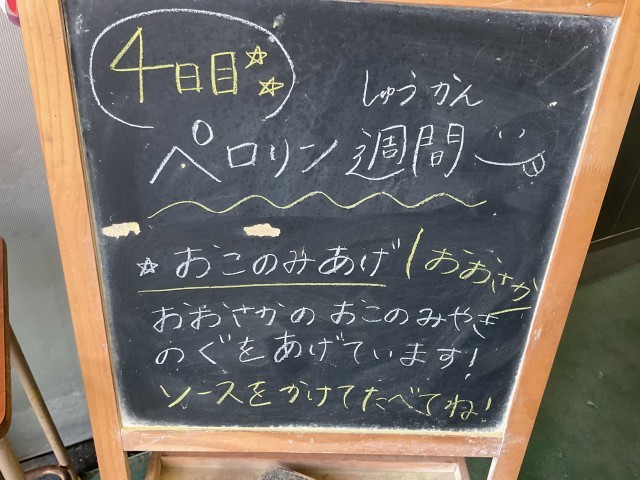 4日目
しゅうかん
ペロリン週間
☆おこのみあげ/おおさか
おおさかのおこのみやき
のぐをあげています!
ソースをかけてたべてね!